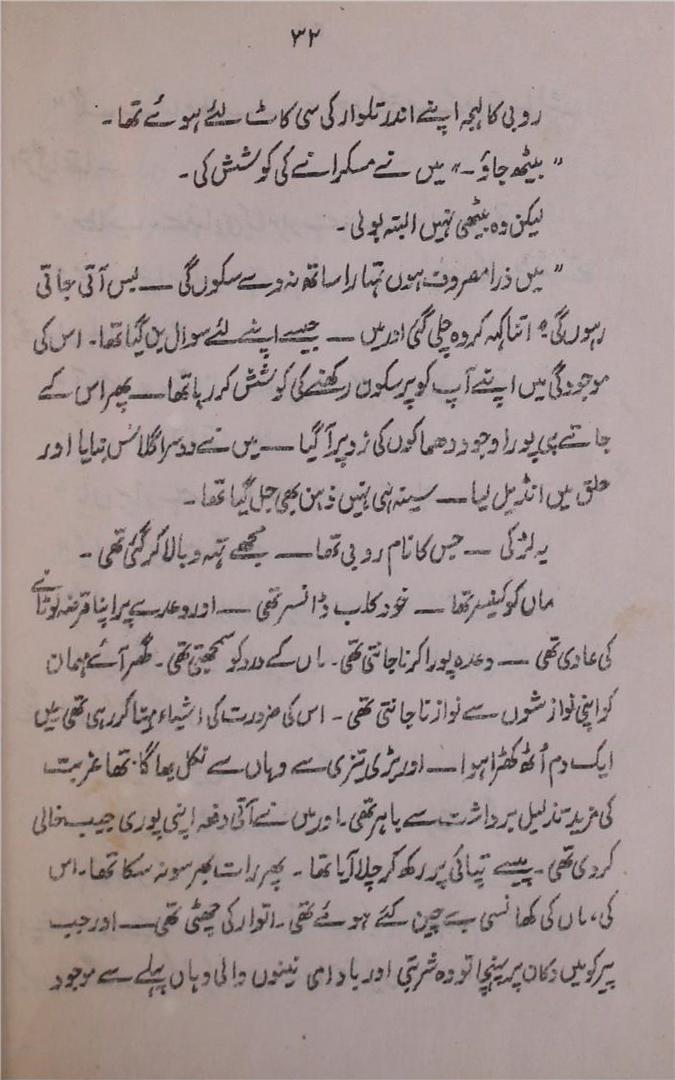 ۳۲
روبی کا لہجہ اپنے اندر تلوار کی سی کاٹ لئے ہوئے تھا۔
”بیٹھ جاؤ۔“ میں نے مسکرانے کی کوشش کی۔
لیکن وہ بیٹھی نہیں البتہ بولی۔
”میں ذرا مصروف ہوں تمہارا ساتھ نہ دے سکوں گی — بس آتی جاتی
رہوں گی“ اتنا کہہ کر وہ چلی گئی اور میں — جیسے اپنے لئے سوال بن گیا تھا۔ اس کی
موجودگی میں اپنے آپ کو پرسکون رکھنے کی کوشش کر رہا تھا — پھر اس کے
جاتے ہی پورا وجود دھماکوں کی زد پر آ گیا — میں نے دوسرا گلاس بنایا اور
حلق میں انڈیل لیا — سینہ ہی نہیں ذہن بھی جل گیا تھا۔
یہ لڑکی — جس کا نام روبی تھا — مجھے تہہ و بالا کر گئی تھی۔
ماں کو کینسر تھا — خود کلب ڈانسر تھی — اور وعدے پر اپنا قرضہ لوٹانے
کی عادی تھی — وعدہ پورا کرنا جانتی تھی۔ ماں کے درد کو سمجھتی تھی۔ گھر آئے مہمان
کو اپنی نوازشوں سے نوازنا جانتی تھی۔ اس کی ضرورت کی اشیاء مہیا کر رہی تھی میں
ایک دم اُٹھ کھڑا ہوا — اور بڑی تیزی سے وہاں سے نکل بھاگا تھا غربت
کی مزید تذلیل برداشت سے باہر تھی۔ اور میں نے آتی دفعہ اپنی پوری جیب خالی
کر دی تھی۔ پیسے تپائی پر رکھ کر چلا آیا تھا۔ پھر رات بھر سو نہ سکا تھا۔ اس
کی، ماں کی کھانسی بے چین کئے ہوئے تھی۔ اتوار کی چھٹی تھی — اور جب
پیر کو میں دکان پر پہنچا تو وہ شربتی اور بادامی نینوں والی وہاں پہلے سے موجود